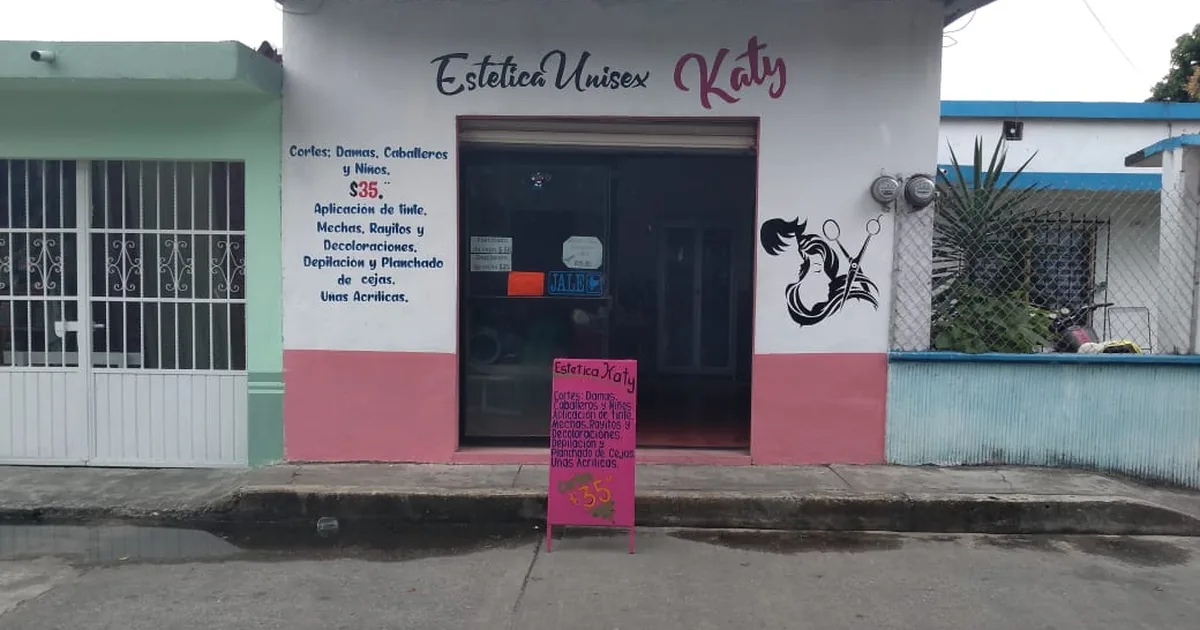 Estetica Unisex Katy
Cortes: Damas, Caballeros
y Ninos.
$35.
Aplicación de tinte.
Mechas, Rayitos y
Decoloraciones.
Depilación y Planchado
de cejas.
Unas Acrilicas.
JALE
Estetica Katy
Cortes: Damas,
Caballeros y Niños
Aplicación de tinte,
Mechas, Rayitos y
Decoloraciones,
Depilación y
Planchado de Cejas
Unas Acrilicas.
$35